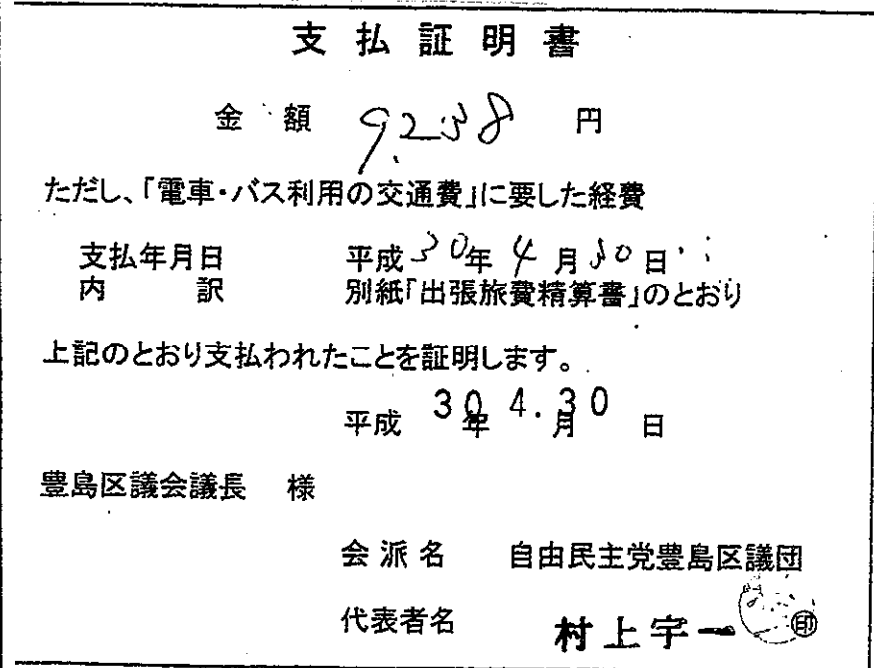 支払証明書
金額 9,238 円
ただし、「電車・バス利用の交通費」に要した経費
支払年月日 平成30年4月30日
内訳 別紙「出張旅費精算書」のとおり
上記のとおり支払われたことを証明します。
平成 30年 4.月30 日
豊島区議会議長 様
会派名 自由民主党豊島区議団
代表者名 村上宇一 印